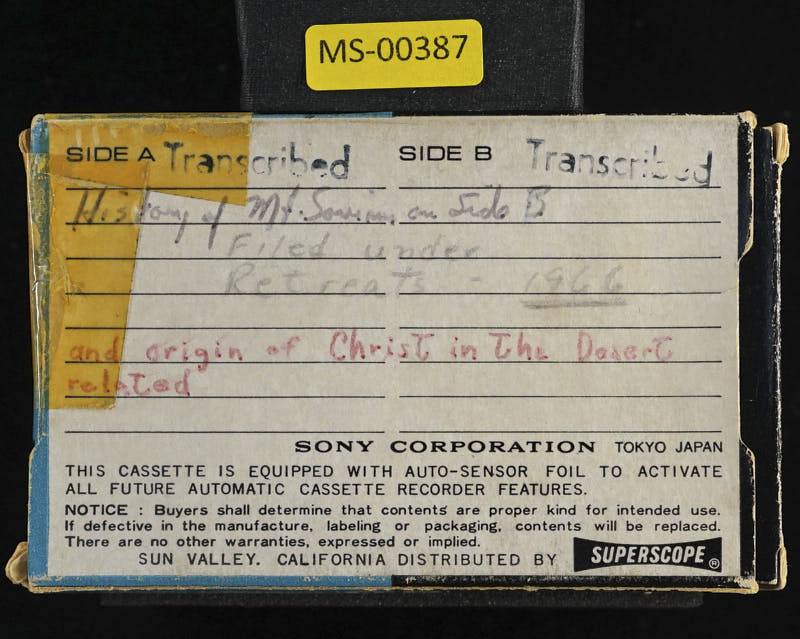 MS-00387
SIDE A Transcribed SIDE B Transcribed
History of Mt. Saviour on Side B
Filed under
Retreats - 1966
and origin of Christ in the Desert
related
SONY CORPORATION TOKYO JAPAN
THIS CASSETTE IS EQUIPPED WITH AUTO-SENSOR FOIL TO ACTIVATE
ALL FUTURE AUTOMATIC CASSETTE RECORDER FEATURES.
NOTICE : Buyers shall determine that contents are proper kind for intended use.
If defective in the manufacture, labeling or packaging, contents will be replaced.
There are no other warranties, expressed or implied.
SUN VALLEY. CALIFORNIA DISTRIBUTED BY SUPERSCOPE ®